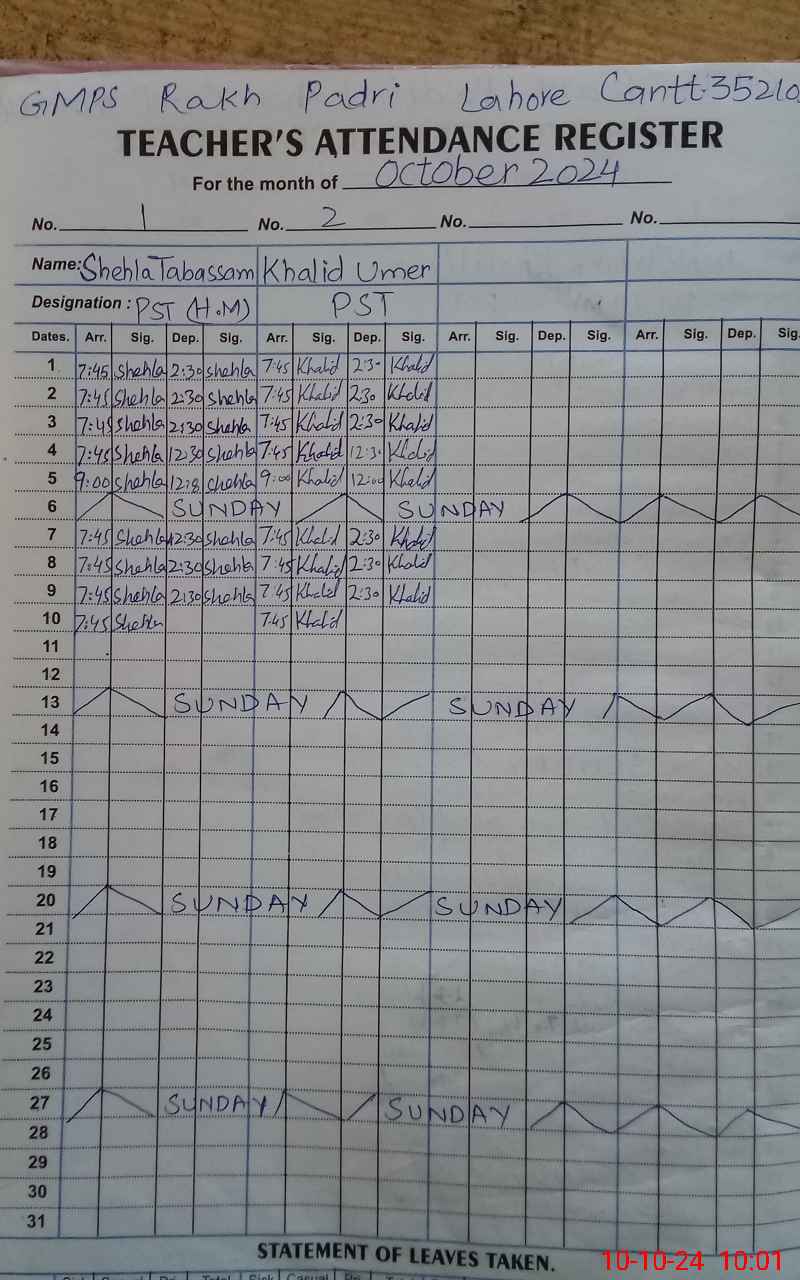 GMPS Rakh Padri Lahore Cantt. 35210
TEACHER'S ATTENDANCE REGISTER
For the month of October 2024
No. 1 No. 2 No. No.
Name: Shehla Tabassam Khalid Umer
Designation: PST (H.M) PST
Dates. Arr. Sig. Dep. Sig. Arr. Sig. Dep. Sig. Arr. Sig. Dep. Sig. Arr. Sig. Dep. Sig.
1 7:45 Shehla 2:30 Shehla 7:45 Khalid 2:30 Khalid
2 7:45 Shehla 2:30 Shehla 7:45 Khalid 2:30 Khalid
3 7:45 Shehla 2:30 Shehla 7:45 Khalid 2:30 Khalid
4 7:45 Shehla 12:30 Shehla 7:45 Khalid 12:30 Khalid
5 9:00 Shehla Shehla 9:00 Khalid 12:00 Khalid
6 SUNDAY SUNDAY
7 7:45 Shehla 2:30 Shehla 7:45 Khalid 2:30 Khalid
8 7:45 Shehla 2:30 Shehla 7:45 Khalid 2:30 Khalid
9 7:45 Shehla 2:30 Shehla 7:45 Khalid 2:30 Khalid
10 7:45 Shehla 7:45 Khalid
11
12
13 SUNDAY SUNDAY
14
15
16
17
18
19
20 SUNDAY SUNDAY
21
22
23
24
25
26
27 SUNDAY SUNDAY
28
29
30
31
STATEMENT OF LEAVES TAKEN.
10-10-24 10:01